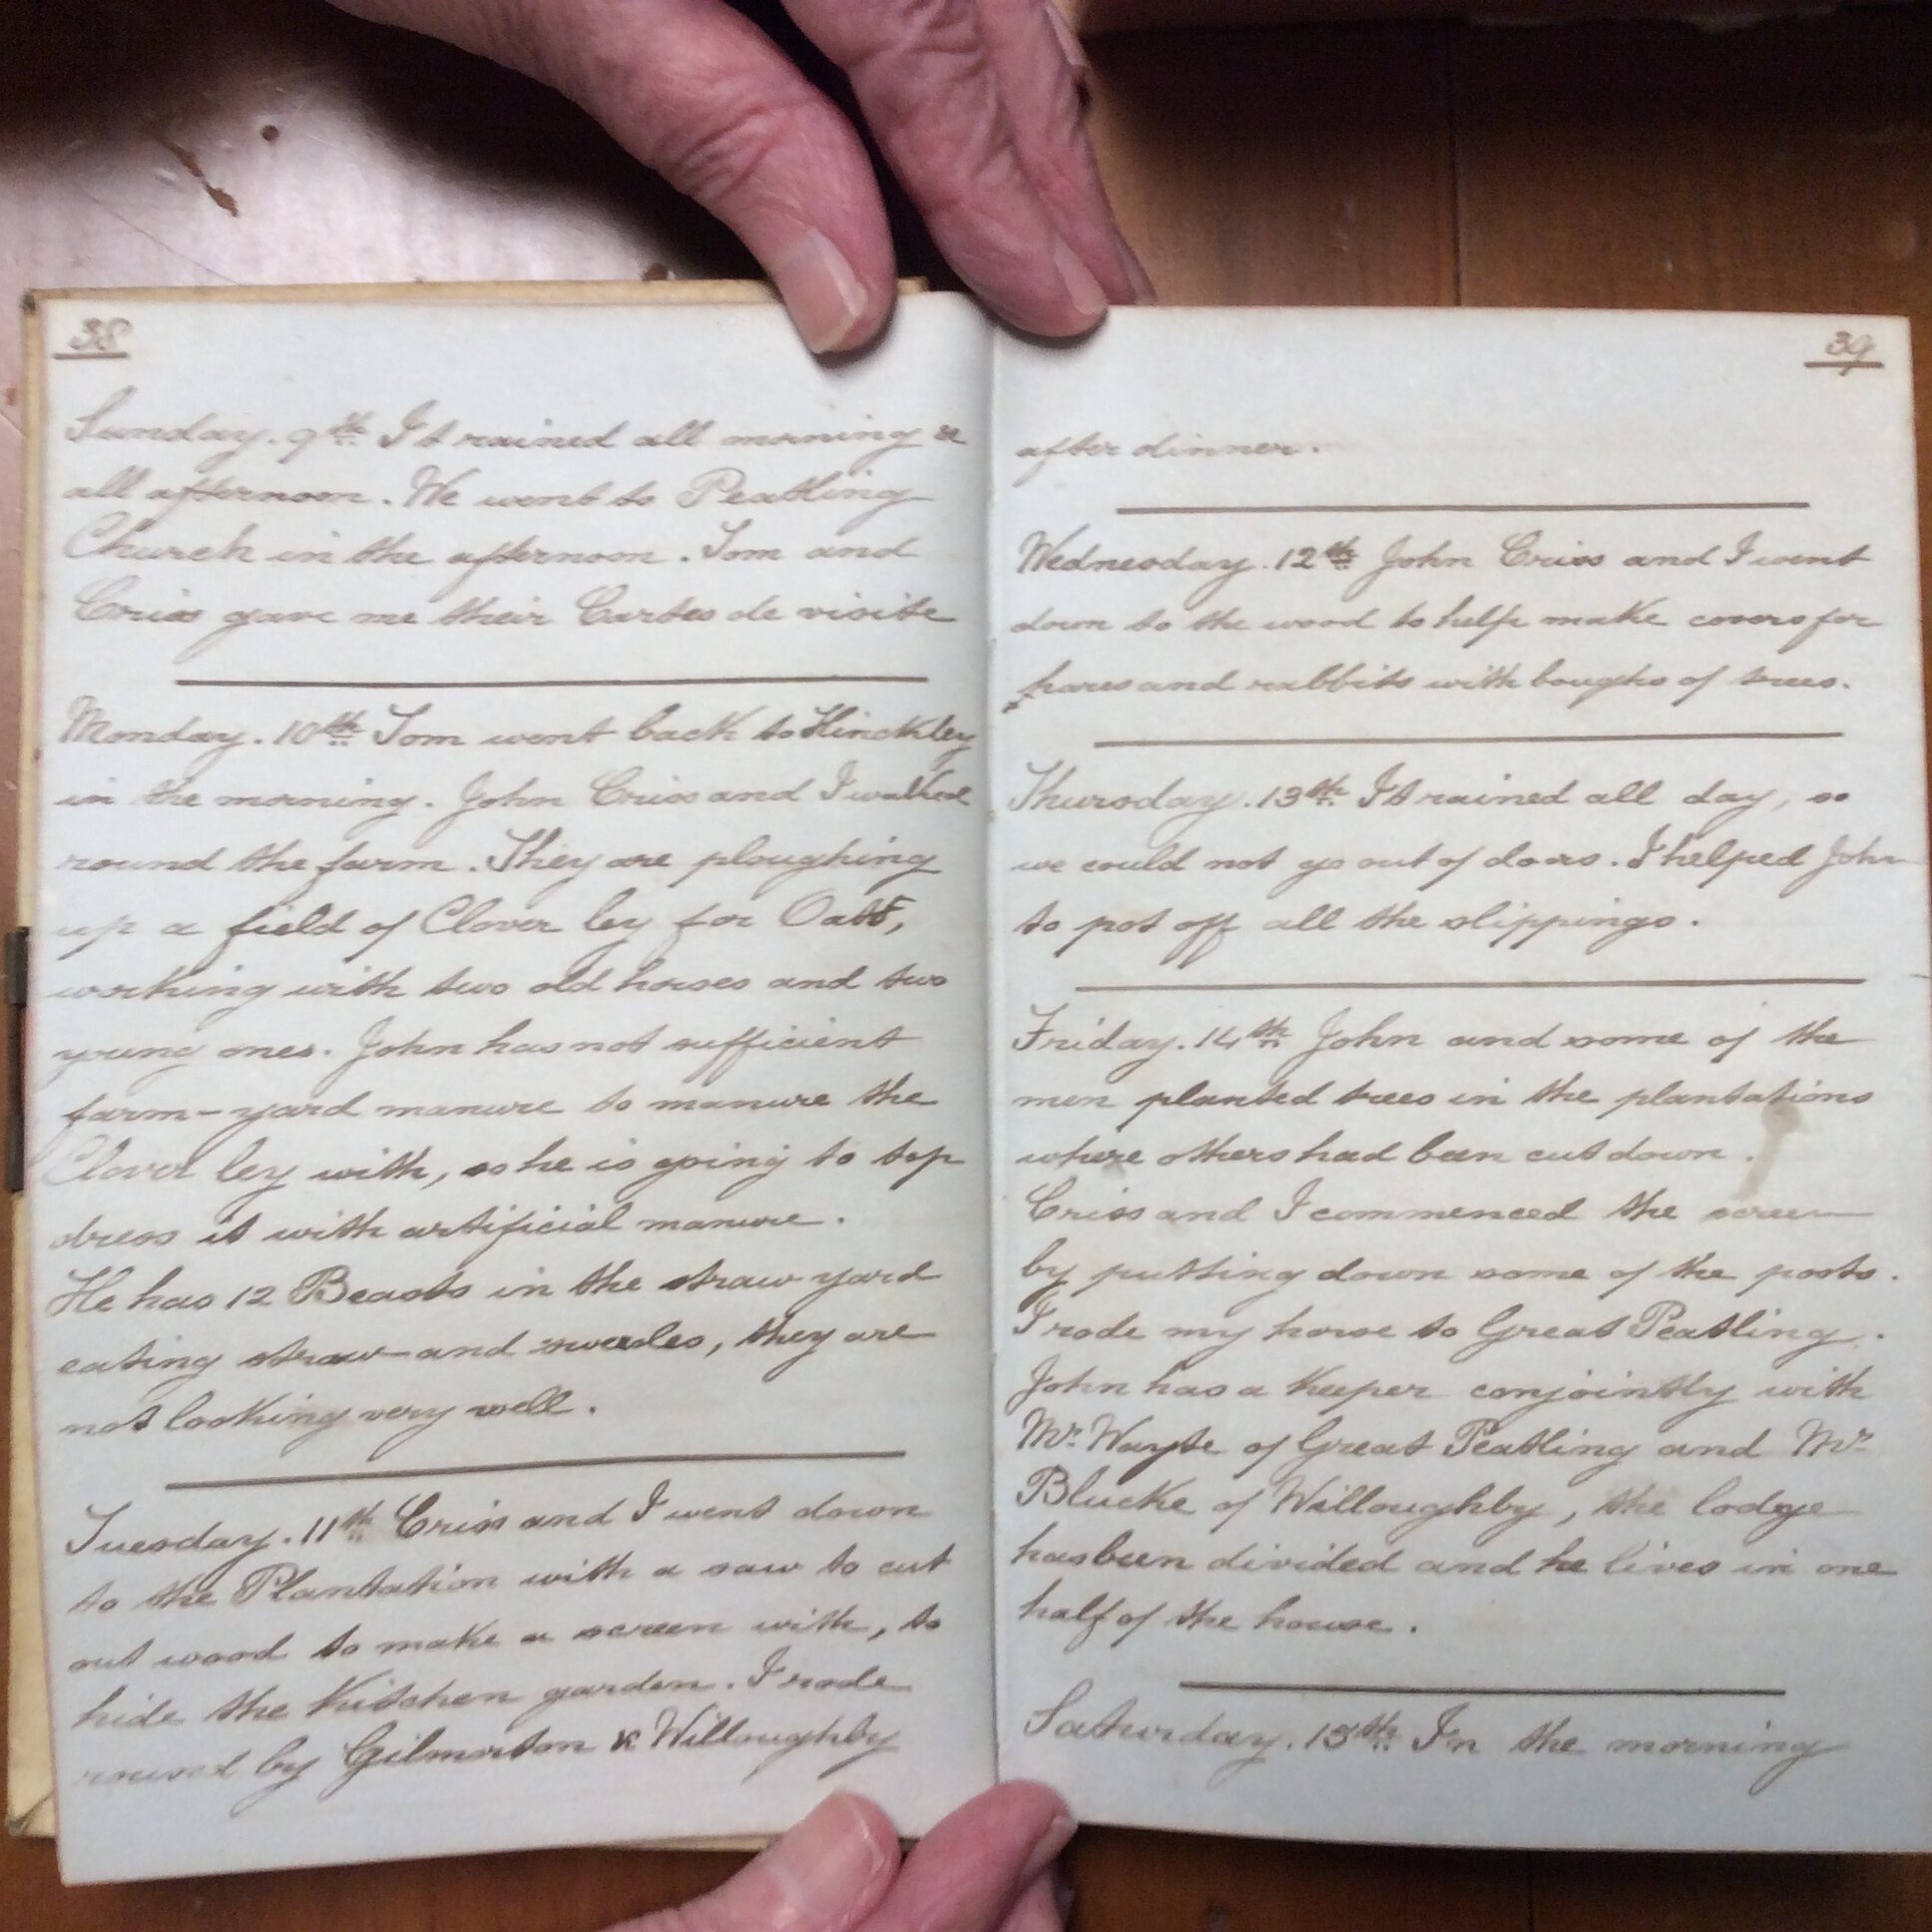 38
Sunday. 9th It rained all morning &
all afternoon. We went to Peatling
Church in the afternoon. Tom and
Criss gave me their Cartes de visite
Monday. 10th Tom went back to Hinckley
in the morning. John Criss and I walked
round the farm. They are ploughing
up a field of Clover ley for Oats,
working with two old horses and two
young ones. John has not sufficient
farm-yard manure to manure the
Clover ley with, so he is going to top
dress it with artificial manure.
He has 12 Beasts in the straw yard
eating straw and swedes, they are
not looking very well.
Tuesday. 11th Criss and I went down
to the Plantation with a saw to cut
out wood to make a screen with, to
hide the Kitchen garden. I rode
round by Gilmorton & Willoughby
39
after dinner.
Wednesday. 12th John Criss and I went
down to the wood to help make covers for
hares and rabbits with boughs of trees.
Thursday. 13th It rained all day, so
we could not go out of doors. I helped John
to pot off all the slippings.
Friday. 14th John and some of the
men planted trees in the plantations
where others had been cut down.
Criss and I commenced the screen
by putting down some of the posts.
I rode my horse to Great Peatling.
John has a Keeper conjointly with
Mr. Wayte of Great Peatling and Mr
Blucke of Willoughby, the lodge
has been divided and he lives in one
half of the house.
Saturday. 15th In the morning